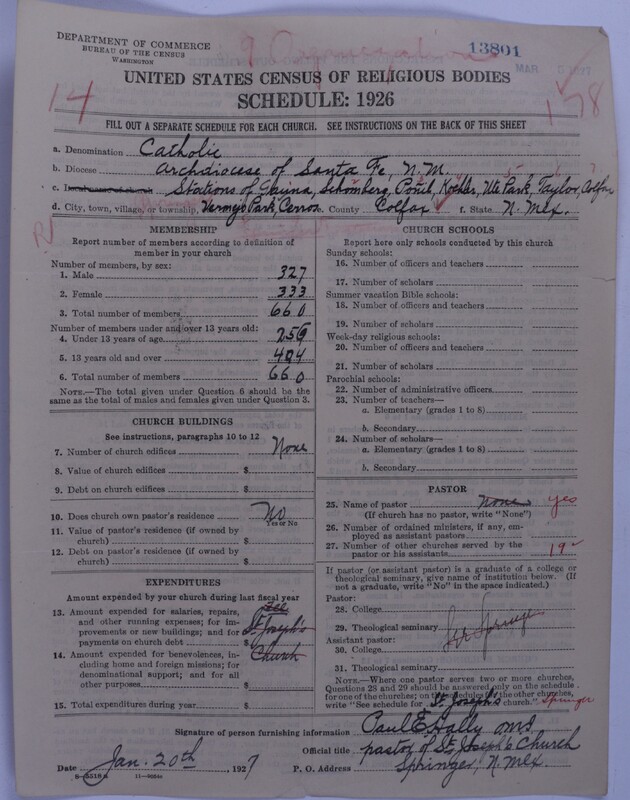 DEPARTMENT OF COMMERCE
BUREAU OF THE CENSUS
WASHINGTON
13801
MAR
UNITED STATES CENSUS OF RELIGIOUS BODIES
SCHEDULE: 1926
14
178
FILL OUT A SEPARATE SCHEDULE FOR EACH CHURCH. SEE INSTRUCTIONS ON THE BACK OF THIS SHEET
a. Denomination Catholic
b. Diocese Archdiocese of Santa Fe, N.M.
c. Stations of Gavina, Schomberg, Ponil, Koehler, Ute Park, Taylor, Colfax
d. City, town, village, or township, Vermejo Park, Cerroso e. County Colfax f. State N. Mex.
MEMBERSHIP
Report number of members according to definition of
member in your church
Number of members, by sex:
1. Male 327
2. Female 333
3. Total number of members 660
Number of members under and over 13 years old:
4. Under 13 years of age 256
5. 13 years old and over 404
6. Total number of members 660
NOTE.—The total given under Question 6 should be the
same as the total of males and females given under Question 3.
CHURCH BUILDINGS
See instructions, paragraphs 10 to 12
7. Number of church edifices None
8. Value of church edifices $
9. Debt on church edifices $
10. Does church own pastor's residence No
Yes or No
11. Value of pastor's residence (if owned by
church) $
12. Debt on pastor's residence (if owned by
church) $
EXPENDITURES
Amount expended by your church during last fiscal year
13. Amount expended for salaries, repairs,
and other running expenses; for im-
provements or new buildings; and for
payments on church debt $
See
St Joseph's
Church
14. Amount expended for benevolences, in-
cluding home and foreign missions; for
denominational support; and for all
other purposes $
15. Total expenditures during year $
CHURCH SCHOOLS
Report here only schools conducted by this church
Sunday schools:
16. Number of officers and teachers
17. Number of scholars
Summer vacation Bible schools:
18. Number of officers and teachers
19. Number of scholars
Week-day religious schools:
20. Number of officers and teachers
21. Number of scholars
Parochial schools:
22. Number of administrative officers
23. Number of teachers—
a. Elementary (grades 1 to 8)
b. Secondary
24. Number of scholars—
a. Elementary (grades 1 to 8)
b. Secondary
PASTOR
25. Name of pastor None yes
(If church has no pastor, write "None")
26. Number of ordained ministers, if any, em-
ployed as assistant pastors
27. Number of other churches served by the
pastor or his assistants 19
If pastor (or assistant pastor) is a graduate of a college or
theological seminary, give name of institution below. (If
not a graduate, write "No" in the space indicated.)
Pastor:
28. College
29. Theological seminary
See Springer
Assistant pastor:
30. College
31. Theological seminary
NOTE.—Where one pastor serves two or more churches,
Questions 28 and 29 should be answered only on the schedule
for one of the churches; on the schedules for the other churches,
write "See schedule for St Joseph's church." Springer
Signature of person furnishing information Paul E Hally OMI
Official title pastor of St. Joseph's Church
Date Jan. 20th, 1927 P. O. Address Springer, N. Mex.